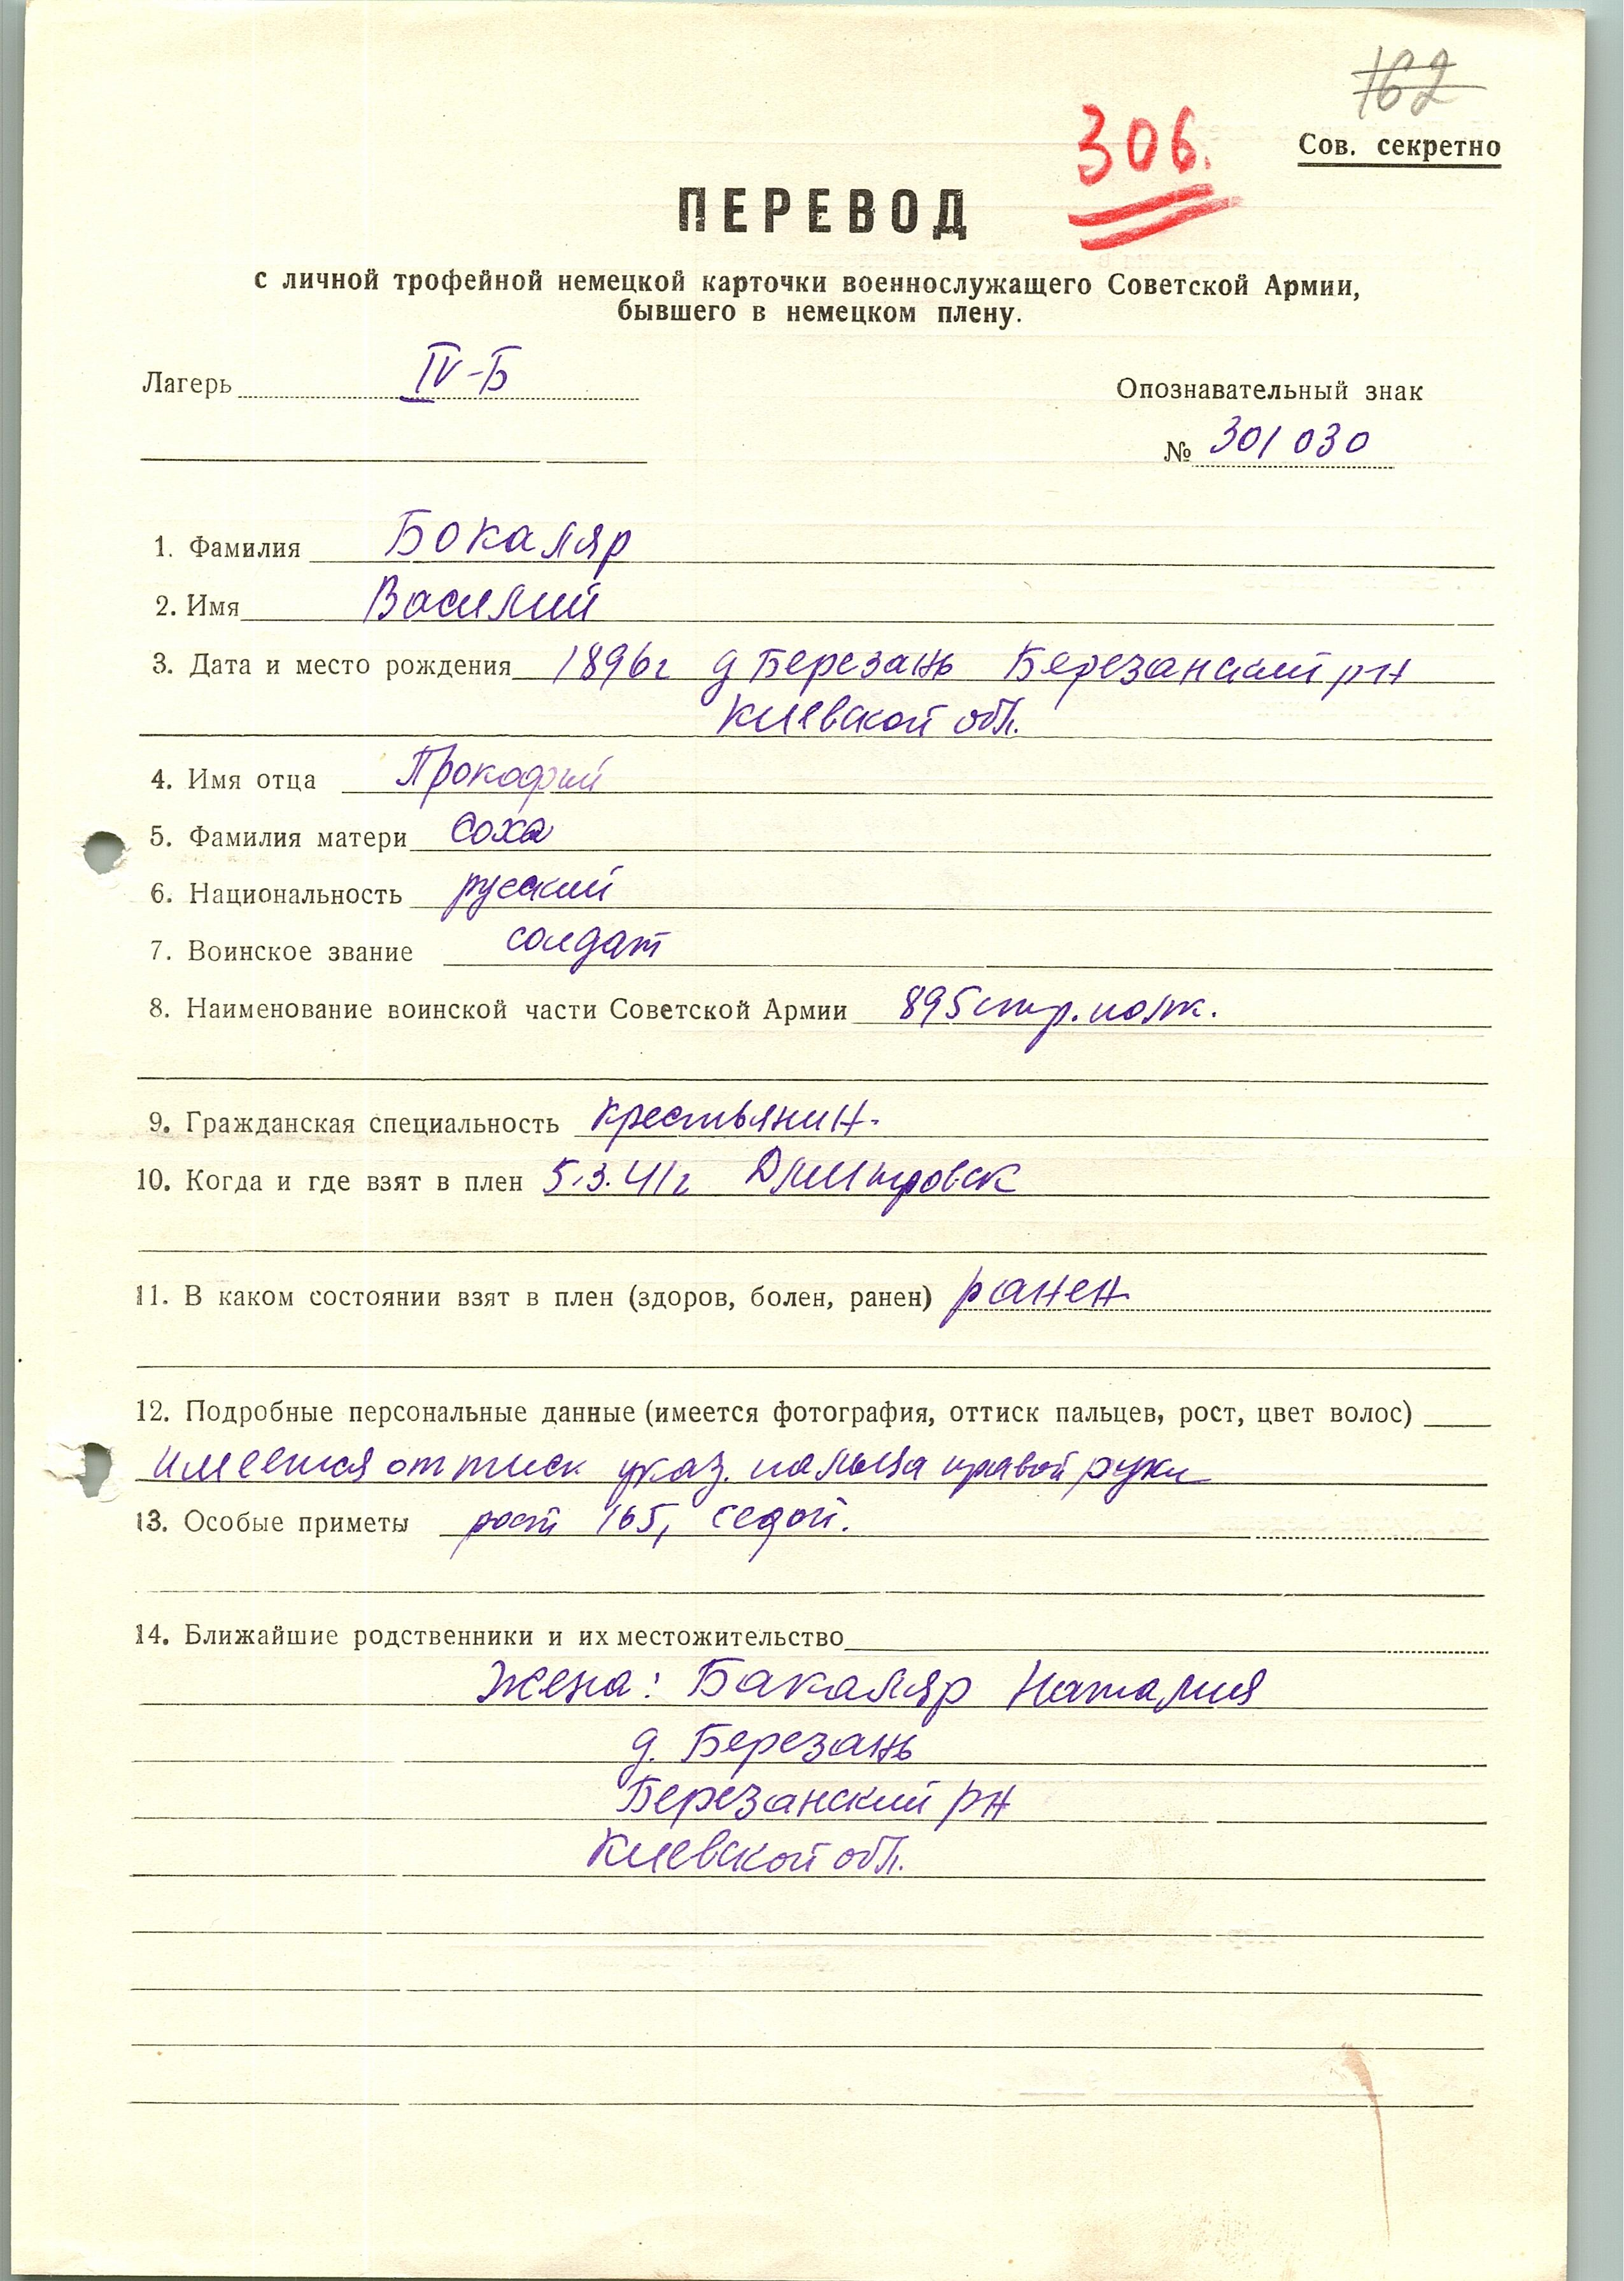 162
306.
Сов. секретно
ПЕРЕВОД
с личной трофейной немецкой карточки военнослужащего Советской Армии,
бывшего в немецком плену.
Лагерь IV-Б
Опознавательный знак
№ 301030
1. Фамилия Бокаляр
2. Имя Василий
3. Дата и место рождения 1896г д Березань Березанский рн
Киевской обл.
4. Имя отца Прокофий
5. Фамилия матери Соха
6. Национальность русский
7. Воинское звание солдат
8. Наименование воинской части Советской Армии 895 стр. полк.
9. Гражданская специальность крестьянин.
10. Когда и где взят в плен 5.3.41г Дмитровск
11. В каком состоянии взят в плен (здоров, болен, ранен) ранен
12. Подробные персональные данные (имеется фотография, оттиск пальцев, рост, цвет волос)
имеется оттиск указ. пальца правой руки
13. Особые приметы рост 165, седой.
14. Ближайшие родственники и их местожительство
жена: Бакаляр Наталия
д. Березань
Березанский рн
Киевской обл.